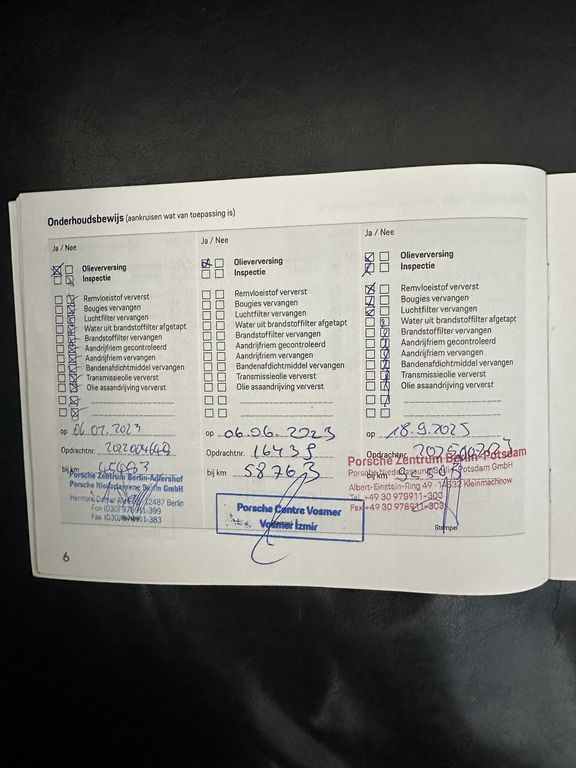 Onderhoudsbewijs (aankruisen wat van toepassing is)
Ja / Nee
Olieverversing
Inspectie
Remvloeistof ververst
Bougies vervangen
Luchtfilter vervangen
Water uit brandstoffilter afgetapt
Brandstoffilter vervangen
Aandrijfriem gecontroleerd
Aandrijfriem vervangen
Bandenafdichtmiddel vervangen
Transmissieolie ververst
Olie asaandrijving ververst
op
Opdrachtnr.
bij km
Porsche Zentrum Berlin-Adlershof
Porsche Niederlassung Berlin GmbH
12487 Berlin
Fon (030) 978911-399
Fax (030) 978911-383
Ja / Nee
Olieverversing
Inspectie
Remvloeistof ververst
Bougies vervangen
Luchtfilter vervangen
Water uit brandstoffilter afgetapt
Brandstoffilter vervangen
Aandrijfriem gecontroleerd
Aandrijfriem vervangen
Bandenafdichtmiddel vervangen
Transmissieolie ververst
Olie asaandrijving ververst
op 06.06.2023
Opdrachtnr. 16439
bij km 58763
Porsche Centre Vosmer
Vosmer İzmir
Ja / Nee
Olieverversing
Inspectie
Remvloeistof ververst
Bougies vervangen
Luchtfilter vervangen
Water uit brandstoffilter afgetapt
Brandstoffilter vervangen
Aandrijfriem gecontroleerd
Aandrijfriem vervangen
Bandenafdichtmiddel vervangen
Transmissieolie ververst
Olie asaandrijving ververst
op 18.9.2025
Opdrachtnr.
bij km
Porsche Zentrum Berlin-Potsdam
Porsche Niederlassung Berlin-Potsdam GmbH
Albert-Einstein-Ring 49 14532 Kleinmachnow
Tel. +49 30 978911-300
Fax +49 30 978911-303
Stempel
6